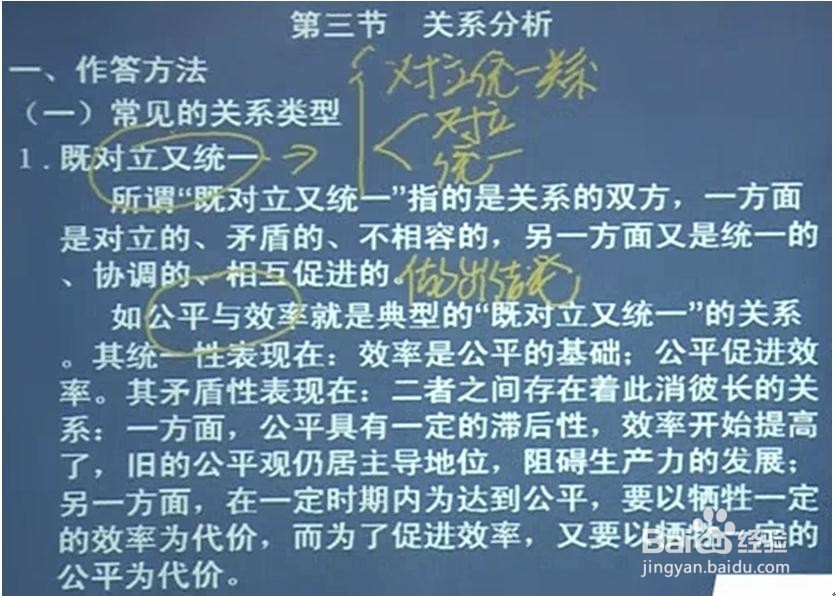 第三节 关系分析
一、作答方法
对立统一关系
（一）常见的关系类型
对立
1.既对立又统一
统一
所谓“既对立又统一”指的是关系的双方，一方面
是对立的、矛盾的、不相容的，另一方面又是统一的
、协调的、相互促进的。
如公平与效率就是典型的“既对立又统一”的关系
。其统一性表现在：效率是公平的基础；公平促进效
率。其矛盾性表现在：二者之间存在着此消彼长的关
系：一方面，公平具有一定的滞后性，效率开始提高
了，旧的公平观仍居主导地位，阻碍生产力的发展；
另一方面，在一定时期内为达到公平，要以牺牲一定
的效率为代价，而为了促进效率，又要以牺牲一定的
公平为代价。
Baidu 经验
jingyan.baidu.com